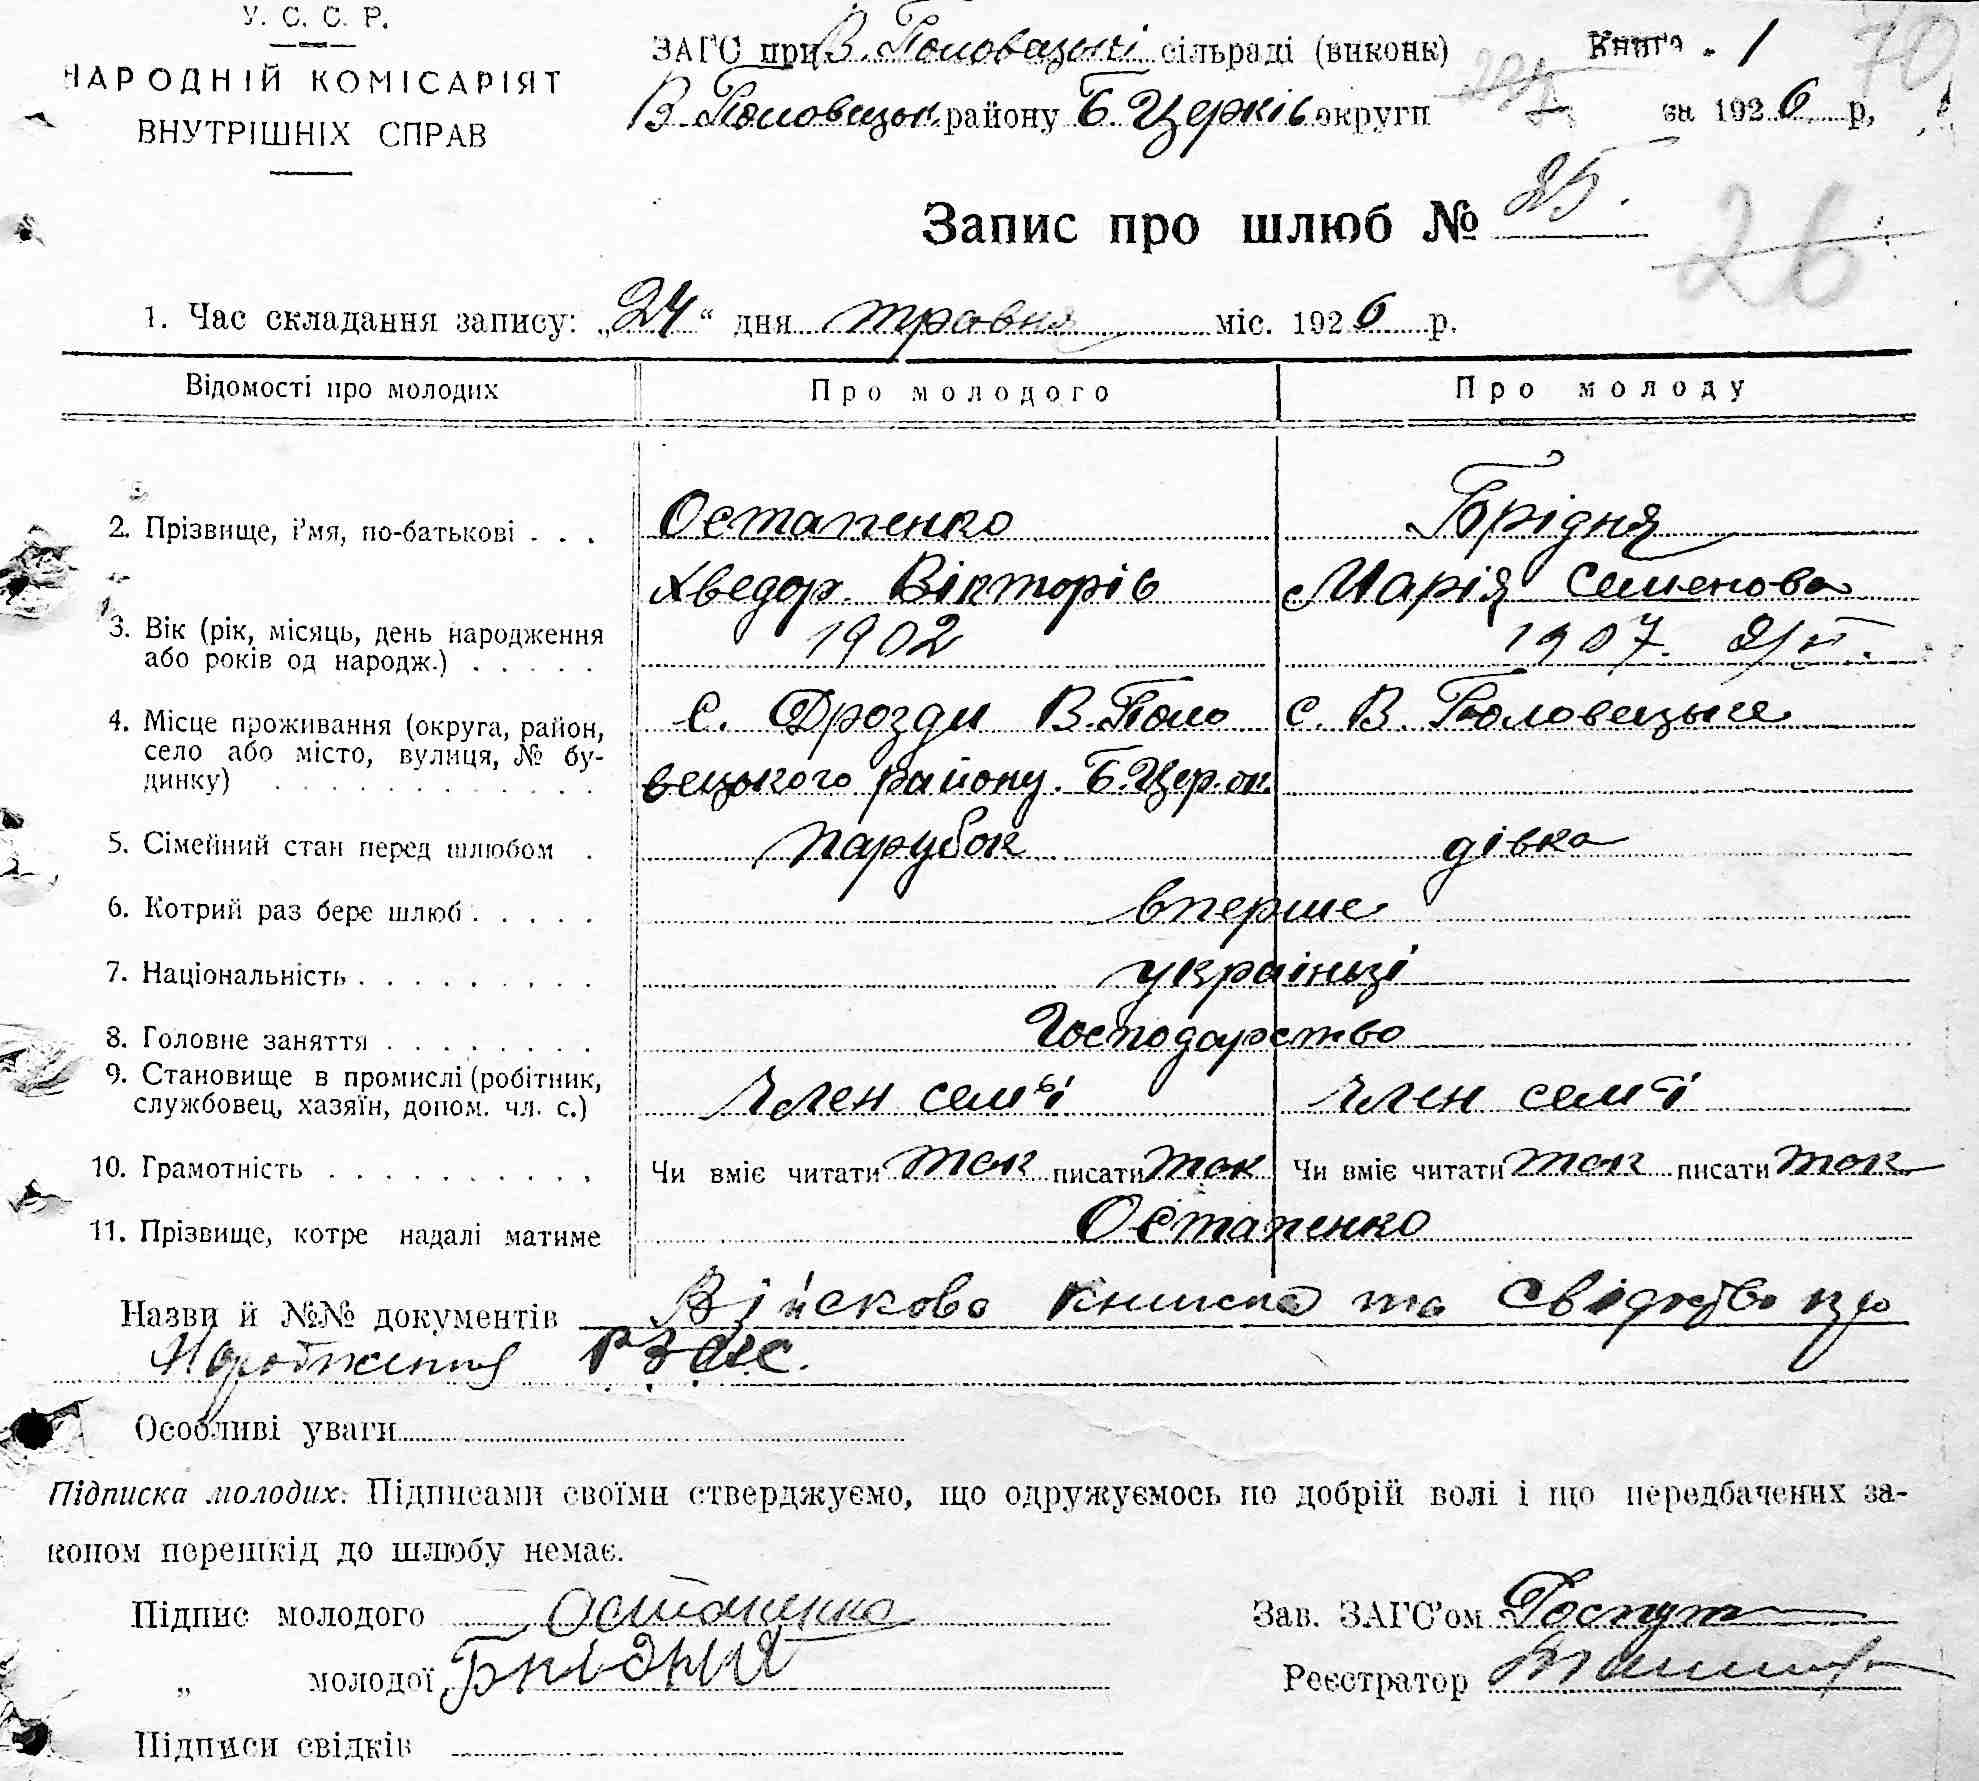 У. С. С. Р.
НАРОДНІЙ КОМІСАРІЯТ
ВНУТРІШНІХ СПРАВ
ЗАГС при В. Половецькі сільраді (виконк) Книга 1 70
В Половецьк району Б. Церків округи за 1926 р,
Запис про шлюб № 25. 26
1. Час складання запису: „24“ дня травня міс. 1926 р.
Відомості про молодих Про молодого Про молоду
2. Прізвище, і'мя, по-батькові . . . Остапенко Брідня
Хведор Вікторів Марія Семенова
3. Вік (рік, місяць, день народження або років од народж.) . . . . . 1902 1907.
4. Місце проживання (округа, район, село або місто, вулиця, № будинку) . . . с. Дрозди В. Поло с. В. Половецьке
вецького району. Б. Цер. ок.
5. Сімейний стан перед шлюбом . парубок дівка
6. Котрий раз бере шлюб . . . . . вперше
7. Національність . . . . . . . . . українці
8. Головне заняття . . . . . . . . Господарство
9. Становище в промислі (робітник, службовец, хазяїн, допом. чл. с.) Член семьі Член семьі
10. Грамотність . . . . . . . . . . Чи вміє читати так писати так Чи вміє читати так писати так
11. Прізвище, котре надалі матиме Остапенко
Назви й №№ документів Війскова книшка та Свідоцтво про
Нородження РЗАГС.
Особливі уваги
Підписка молодих: Підписами своїми стверджуємо, що одружуємось по добрій волі і що передбачених за-
коном перешкід до шлюбу немає.
Підпис молодого Остапенко Зав. ЗАГС'ом
„ молодої Брідня Реєстратор
Підписи свідків